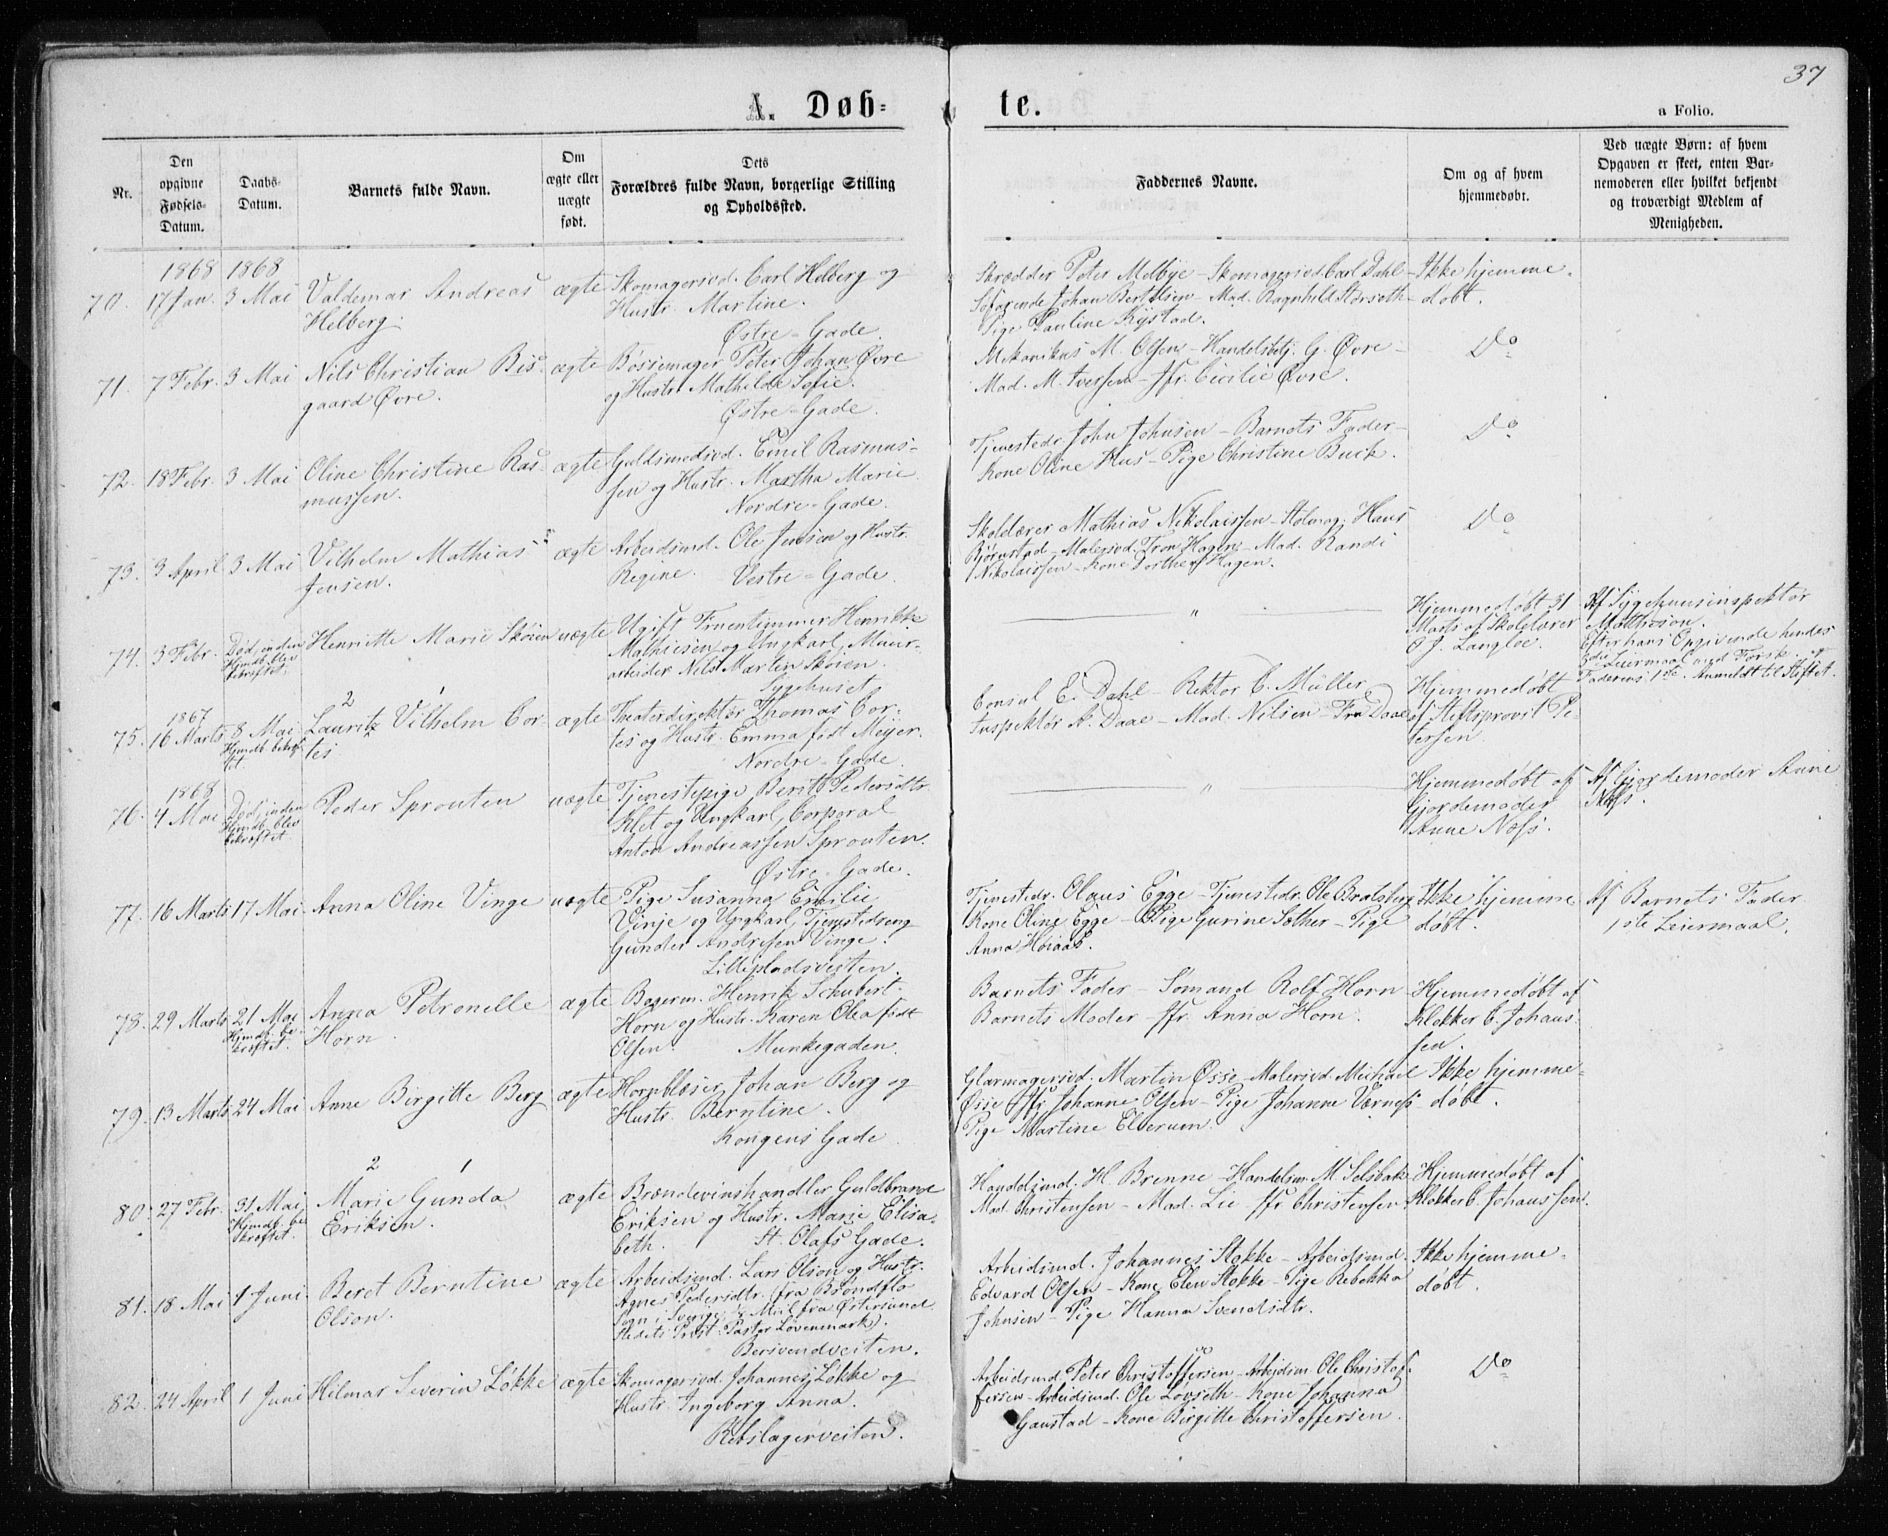 37
A. Døb-
te.
a Folio.
Nr.
Den
opgivne
Fødsels-
Datum.
Daabs-
Datum.
Barnets fulde Navn.
Om
ægte eller
uægte
født.
Dets
Forældres fulde Navn, borgerlige Stilling
og Opholdssted.
Faddernes Navne.
Om og af hvem
hjemmedøbt.
Ved uægte Børn: af hvem
Opgaven er skeet, enten Bar-
nemoderen eller hvilket bekjendt
og troværdigt Medlem af
Menigheden.
1868 1868
70. 17 Jan. 3 Mai Valdemar Andreas
Helberg.
ægte
Skomagersvd. Carl Helberg og
Hustr. Martine.
Østre-Gade.
Skrædder Peter Melbye - Skomagersvd Carl Dahl -
Søfarende Johan Bertelsen - Mad. Ragnhild Storseth -
Pige Pauline Rystad.
Ikke hjemme-
døbt.
71. 7 Febr. 3 Mai Nils Christian Bis-
gaard Øvre.
ægte
Bøssemager Peter Johan Øvre
og Hustr. Mathilde Sofie.
Østre-Gade.
Mekanikus M. Olsen - Handelsbetj. G. Øvre -
Mad. M. Iversen - Jfr. Cicilie Øvre.
Do
72. 18 Febr. 3 Mai Oline Christine Ras-
mussen.
ægte
Guldsmedsvd. Emil Rasmus-
sen og Hustr. Martha Marie
Nordre-Gade.
Tjenestedr. John Johnsen - Barnets Fader -
Kone Oline Hus - Pige Christine Buck.
Do
73. 3 April 3 Mai Vilhelm Mathias
Jensen.
ægte
Arbeidsmd. Ole Jensen og Hustr.
Regine. Vestre-Gade.
Skolelærer Mathias Nikolaissen - Stolmag. Hans
Bjørnstad - Malersvd. Tron Hagen - Mad. Randi
Nikolaissen - Kone Dorthea Hagen.
Do
74. 3 Febr. Død, inden
Hjmdb. blev
bekræftet.
Henriette Marie Skøien
uægte
Ugift Fruentimmer Henrikke
Mathiesen og Ungkarl, Muur-
arbeider Nils Martin Skøien.
Sygehuset
"
Hjemmedøbt 31
Marts af Skolelærer
O. J. Langloe.
Af Sygehuusinspektør
Mathison.
Efter hans Opgivende hendes
Leiermaal med Forsk. og
Faderens 1ste. Anmeldt til Stiftet.
1867
75. 16 Marts 8 Mai
Hjmdb. bekræf-
tet.
2 1
Lauritz Vilhelm Cor-
tes
ægte
Theaterdirektør Thomas Cor-
tes og Hustr. Emma født Meyer.
Nordre-Gade.
Consul E. Dahl - Rektor C. Müller
Inspektør A. Daae - Mad. Nilsen - Fru Daae
Hjemmedøbt
af Stiftsprovst Pe-
tersen
1868
76. 4 Mai Død, inden
Hjmdb. blev
bekræftet.
Peder Sprouten
uægte
Tjenestepige Berit Pedersdtr.
Klet og Ungkarl, Corporal
Anton Andreassen Sprouten.
Østre-Gade.
"
Hjemmedøbt af
Gjordemoder
Anne Næss.
Af Gjordemoder Anne
Næss.
77. 16 Marts 17 Mai Anna Oline Vinge
uægte
Pige Susanna Emilie
Vinje og Ungkarl, Tjenestedreng
Gunder Andresen Vinge.
Lillepladsveiten.
Tjenestedr. Olaus Egge - Tjenestedr. Ole Bradsberg
Kone Oline Egge - Pige Gurine Sother - Pige
Anna Høiaas.
Ikke hjemme
døbt.
Af Barnets Fader
1ste Leiermaal.
78. 29 Marts 21 Mai
Hjmdb. be-
kræftet.
Anna Petronelle
Horn.
ægte
Bagerm. Henrik Schubert
Horn og Hustr. Karen Olea født
Olsen. Munkegaden.
Barnets Fader - Sømand Rolf Horn
Barnets Moder - Jfr. Anna Horn.
Hjemmedøbt af
Klokker C. Johans-
sen.
79. 13 Marts 24 Mai Anne Birgitte Berg
ægte
Hornblæser Johan Berg og
Hustr. Berntine.
Kongens Gade
Glarmagersvd. Martin Øsse - Malersvd. Michael
Øsse Jfr. Johanne Olsen - Pige Johanne Værness
Pige Martine Elverum.
Ikke hjemme-
døbt.
80. 27 Febr. 31 Mai
Hjmdb. be-
kræftet.
2 1
Marie Gunda
Eriksen.
ægte
Brændevinshandler Guldbrand
Eriksen og Hustr. Marie Elisa-
beth. St. Olafs Gade.
Handelsmd. H. Brenne - Handelsm. M. Selsbak
Mad. Christensen - Mad. Lie - Jfr. Christensen
Hjemmedøbt af
Klokker C. Johanssen.
81. 18 Mai 1 Juni Beret Berntine
Olson.
ægte
Arbeidsmd. Lars Olson og Hustr.
Agnes Pedersdtr. (fra Brøndflo
Sogn i Sverige, ½ Miil fra Østersund
Stedets Præst: Pastor Løvenmark).
Bersvendveiten.
Arbeidsmd. Johannes Stokke - Arbeidsmd.
Edvard Olsen - Kone Elen Stokke - Pige Rebekka
Johnsen - Pige Hanna Svendsdtr.
Ikke hjemme-
døbt.
82. 24 April 1 Juni Hilmar Severin Løkke
ægte
Skomagersvd. Johannes Løkke og
Hustr. Ingeborg Anna.
Rebslagerveiten.
Arbeidsmd Peter Christoffersen - Arbeidsm. Ole Christof-
fersen - Arbeidsmd. Ole Løvseth - Kone Johanna
Gaustad - Kone Birgitte Christoffersen.
Do